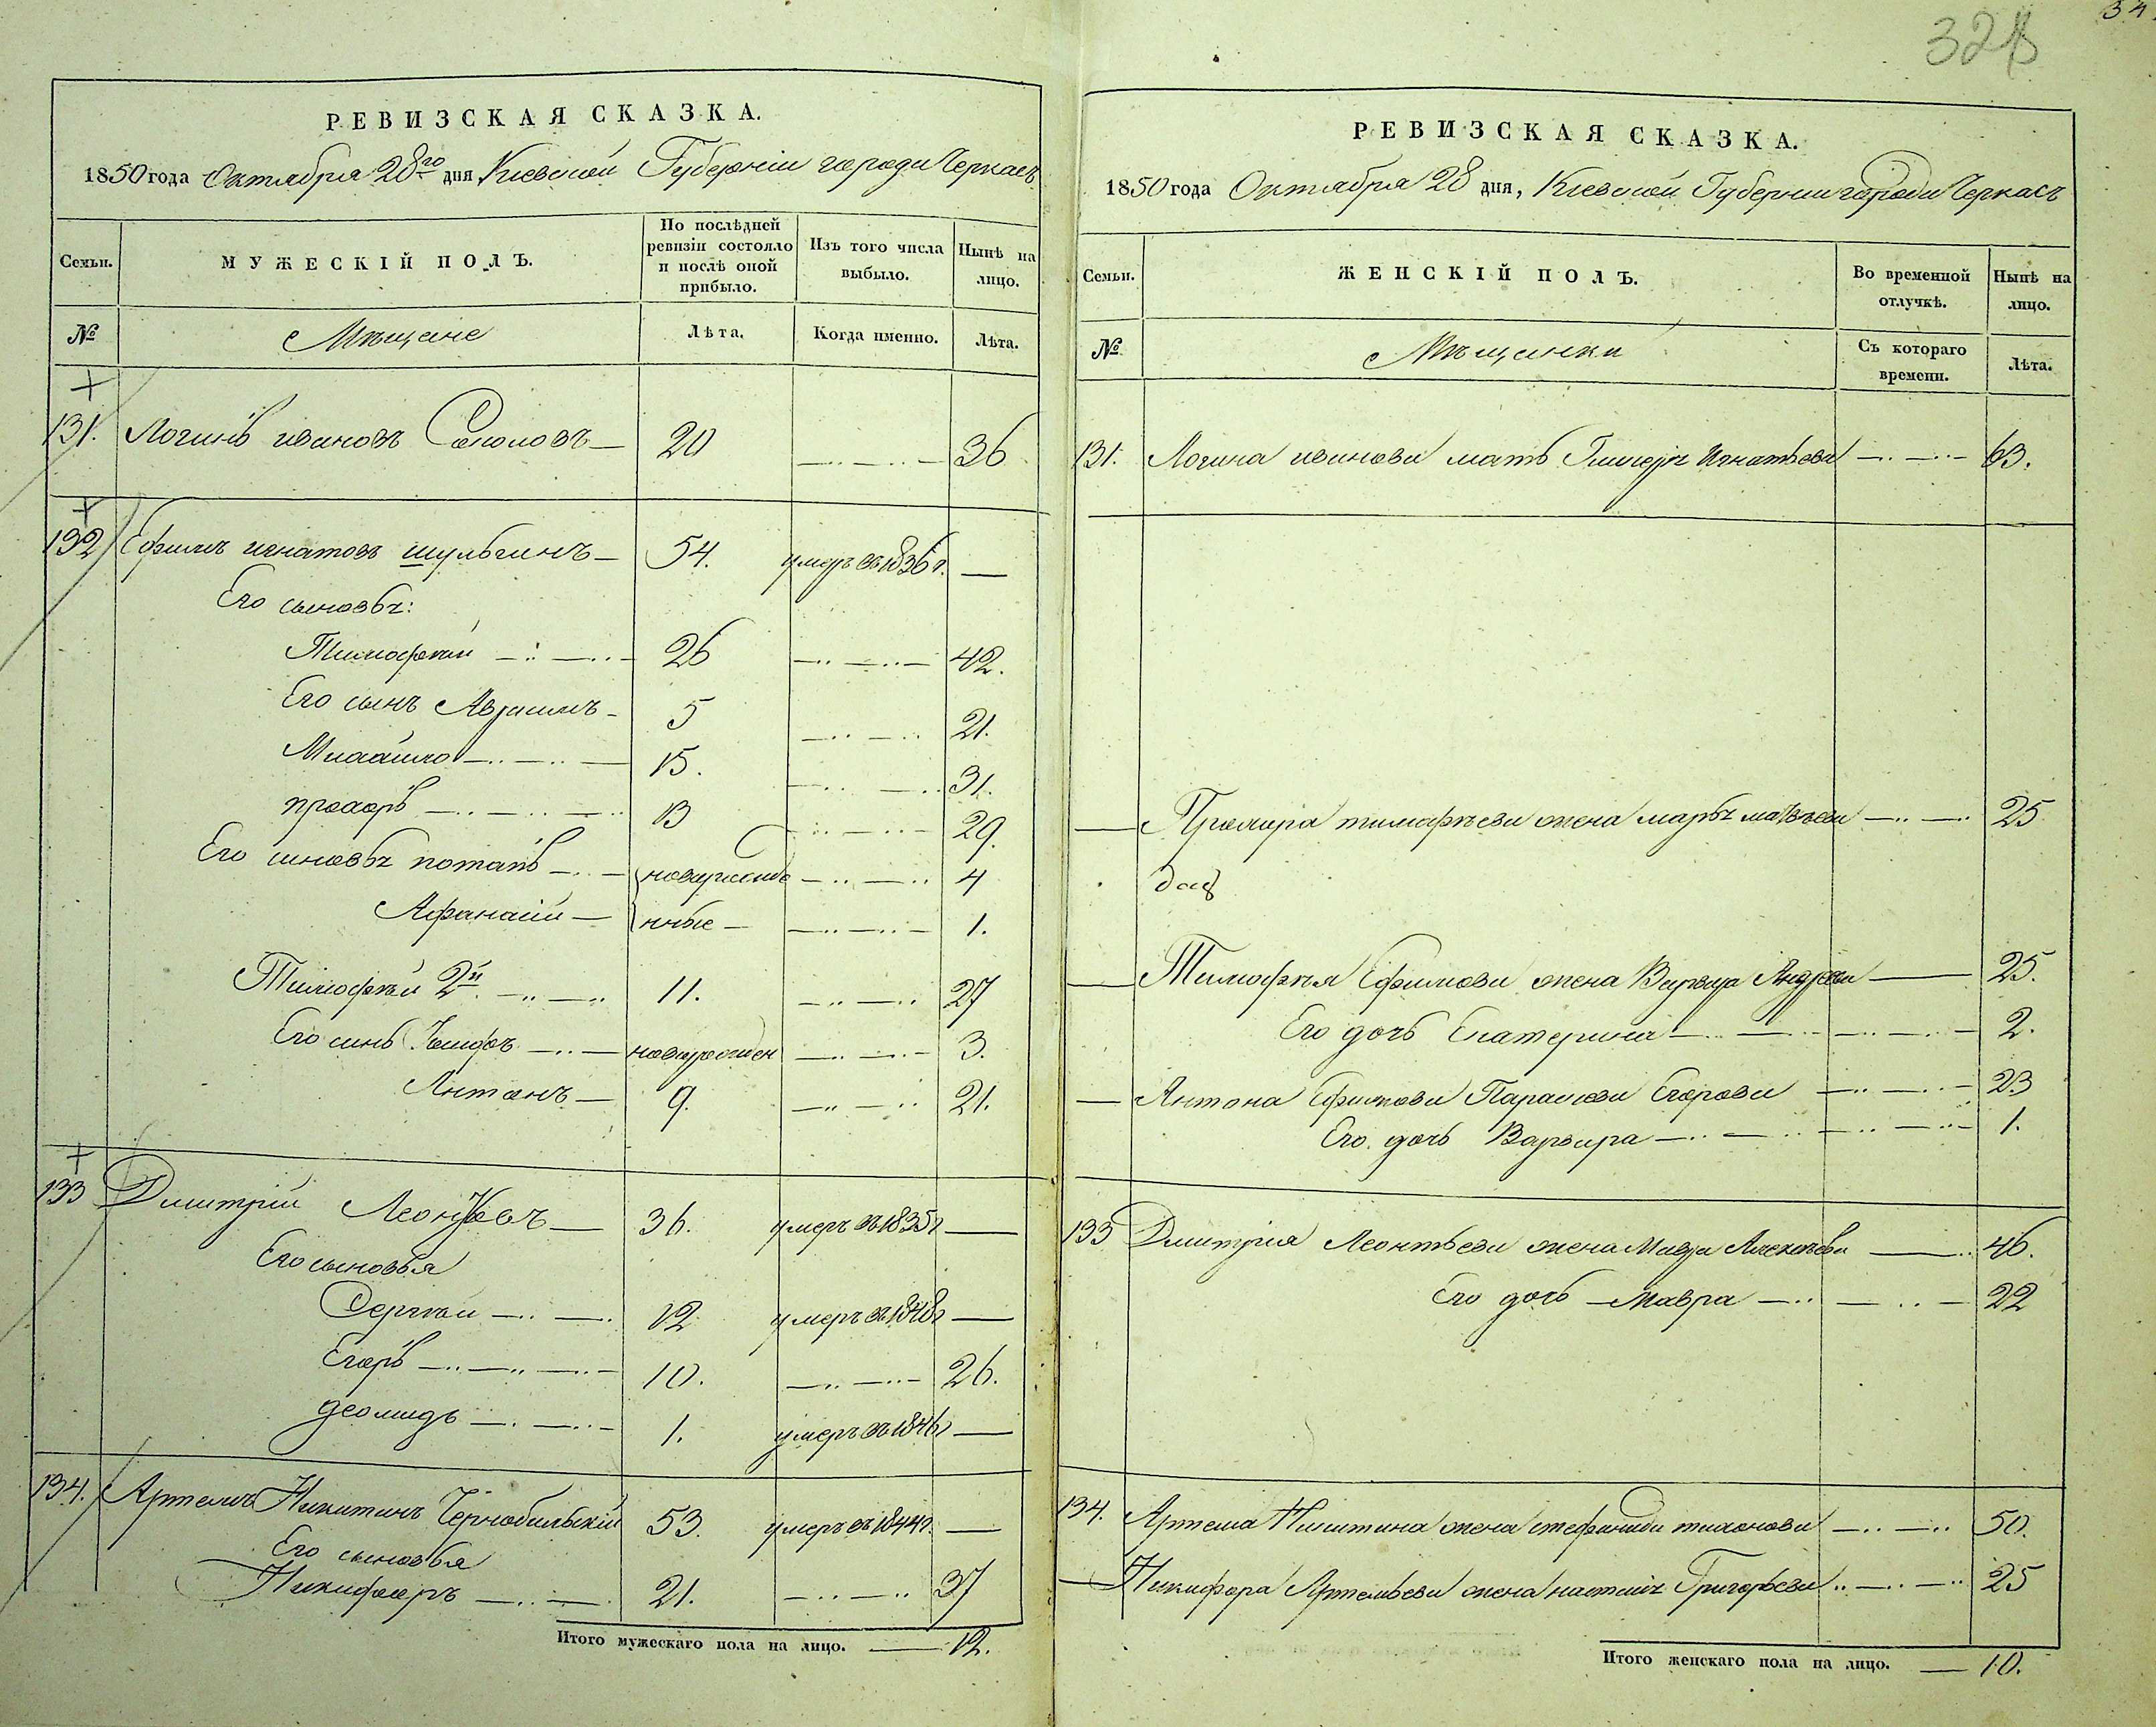 328
34.
РЕВИЗСКАЯ СКАЗКА.
1850 года Октября 28го дня Киевской Губерніи города Черкасъ
Семьи.
МУЖЕСКІЙ ПОЛЪ.
По послѣдней ревизіи состояло и послѣ оной прибыло.
Изъ того числа выбыло.
Нынѣ на лицо.
№
Мѣщане
Лѣта.
Когда именно.
Лѣта.
131. Логинъ ивановъ Соколовъ — 20 36
132 Ефимъ игнатовъ шульгинъ — 54. умеръ въ 1836 г. —
Его сыновья:
Тимофѣй 26 42.
Его сынъ Авраамъ 5 21.
Михайло 15. 31.
прохоръ 13 29.
Его сыновья потапъ новорожде 4
Афанасій — нные — 1.
Тимофѣй 2й 11. 27
Его сынъ Іосифъ новорожден 3.
Антонъ — 9. 21.
133 Дмитрій Леонтьевъ — 36. умеръ въ 1835 г —
Его сыновья
Сергѣй 12 умеръ въ 1848 г —
Егоръ 10. 26.
деомидъ 1. умеръ въ 1846 г —
134. Артемъ Никитинъ Чернобильскій 53. умеръ въ 1844 г. —
Его сыновья
Никифоръ 21. 37
Итого мужескаго пола на лицо. — 12.
РЕВИЗСКАЯ СКАЗКА.
1850 года Октября 28 дня, Киевской Губернии города Черкасъ
Семьи.
ЖЕНСКІЙ ПОЛЪ.
Во временной отлучкѣ.
Нынѣ на лицо.
№
Мѣщанки
Съ котораго времени.
Лѣта.
131. Логина иванова мать Гликерія Игнатьева 63.
— Прохора тимофѣева жена марья матвѣева 25
— Тимофѣя Ефимова жена Варвара Андреева — 25.
Его дочь Екатерина 2.
— Антона Ефимова Параскева Егорова 23
Его дочь Варвара 1.
133 Дмитрія Леонтьева жена Мавра Алексѣева — 46.
Его дочь Мавра 22
134. Артема Никитина жена стефанида тихонова 50.
— Никифора Артемьева жена настасія Григорьева 25
Итого женскаго пола на лицо. — 10.